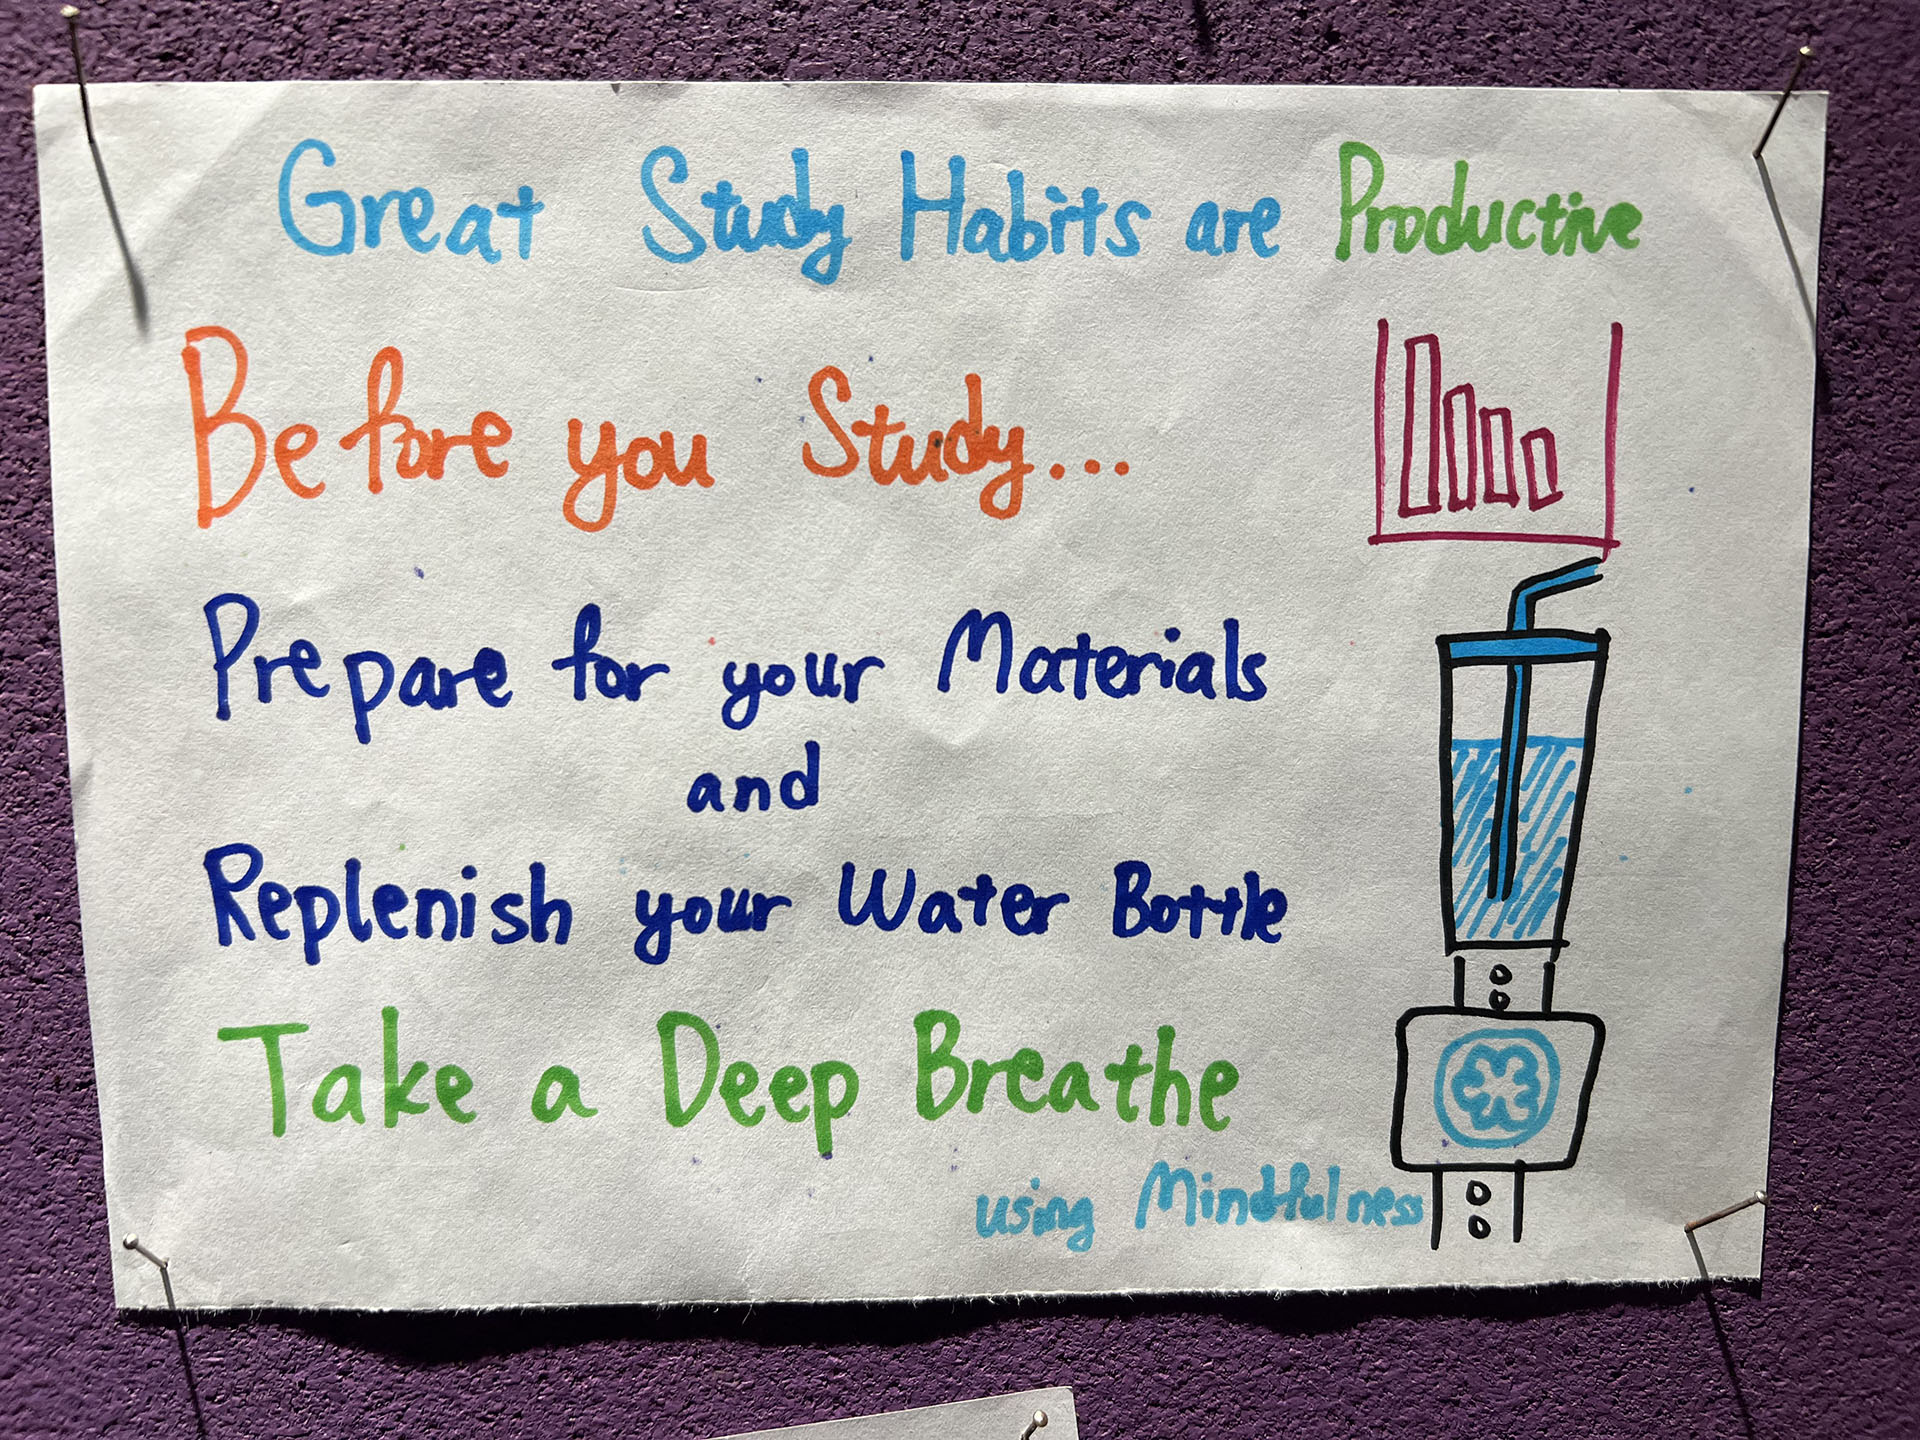 Great Study Habits are Productive
Before you Study...
Prepare for your Materials
and
Replenish your Water Bottle
Take a Deep Breathe
using Mindfulness